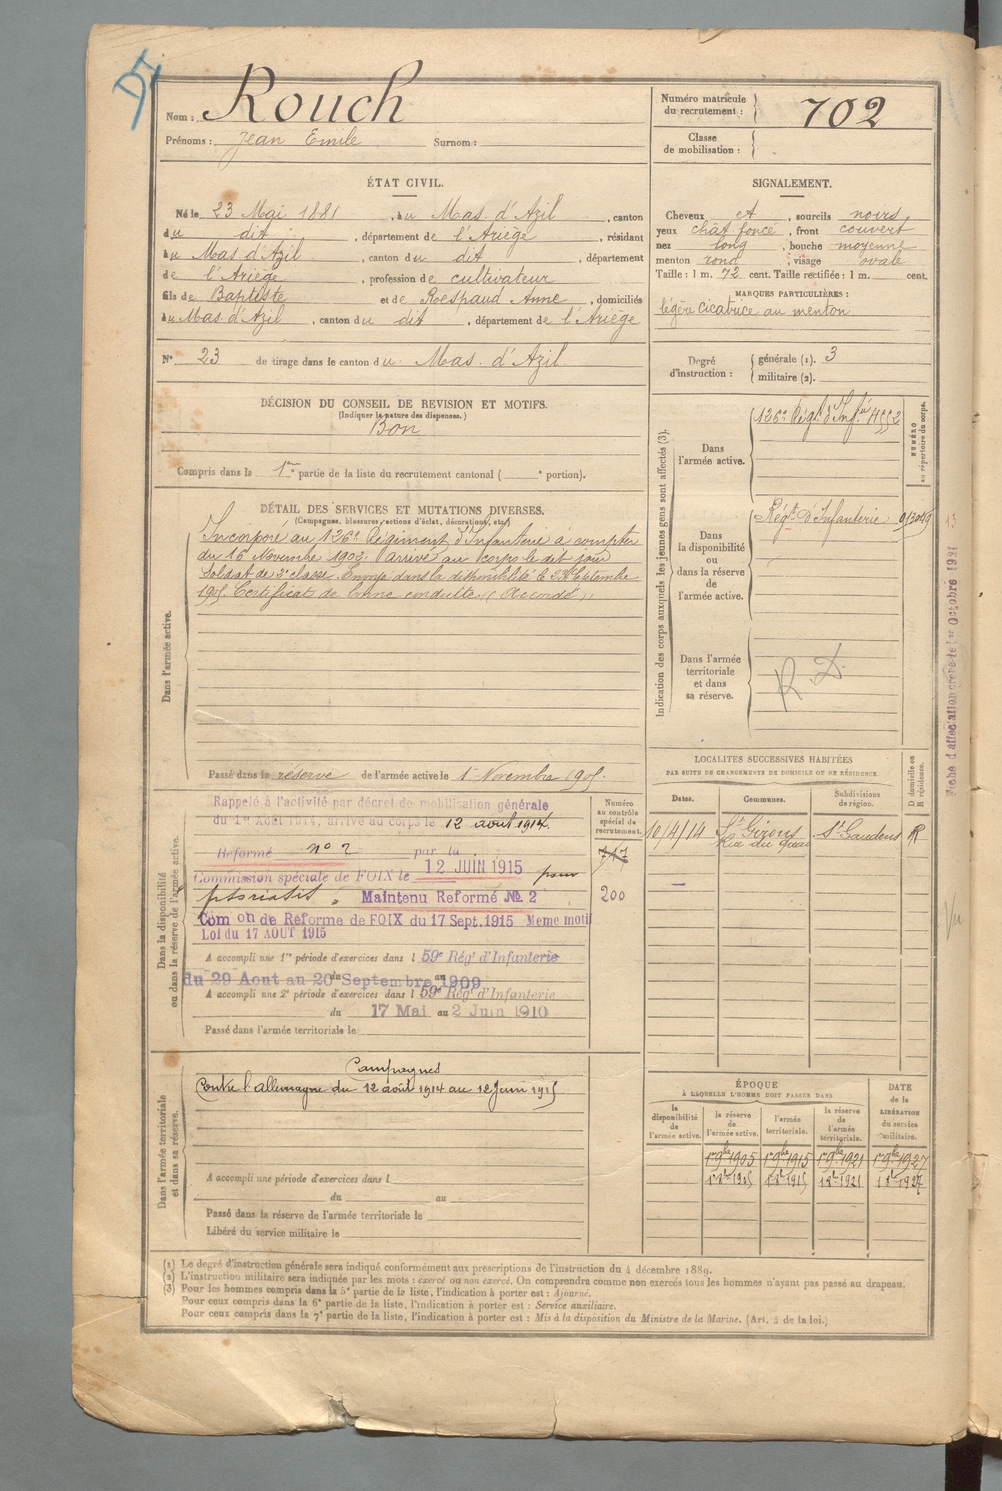 Nom : Rouch
Prénoms : Jean Emile Surnom :
Numéro matricule
du recrutement : 702
Classe
de mobilisation :
ÉTAT CIVIL.
Né le 23 Mai 1881, à u Mas d'Azil, canton
du dit, département de l'Ariège, résidant
à u Mas d'Azil, canton du dit, département
de l'Ariège, profession de cultivateur
fils de Baptiste et de Respaud Anne, domiciliés
à u Mas d'Azil, canton du dit, département de l'Ariège
N° 23 de tirage dans le canton du Mas d'Azil
SIGNALEMENT.
Cheveux et, sourcils noirs
yeux chat foncé, front couvert
nez long, bouche moyenne
menton rond, visage ovale
Taille : 1 m. 72 cent. Taille rectifiée : 1 m. cent.
MARQUES PARTICULIÈRES :
légère cicatrice au menton
Degré
d'instruction :
générale (1). 3
militaire (2).
DÉCISION DU CONSEIL DE REVISION ET MOTIFS.
(Indiquer la nature des dispenses.)
Bon
Compris dans la 1re partie de la liste du recrutement cantonal ( e portion).
DÉTAIL DES SERVICES ET MUTATIONS DIVERSES.
(Campagnes, blessures, actions d'éclat, décorations, etc.)
Dans l'armée active.
Incorporé au 126e Régiment d'Infanterie à compter
du 16 Novembre 1902. arrivé au corps le dit jour
Soldat de 2e classe. Envoyé dans la disponibilité le 23 Septembre
1905 Certificat de bonne conduite « Accordé »
Passé dans la réserve de l'armée active le 1er Novembre 1905.
Indication des corps auxquels les jeunes gens sont affectés (3).
NUMÉRO
au répertoire du corps.
Dans
l'armée active.
126e Régt d'Infie 4552
Dans
la disponibilité
ou
dans la réserve de
l'armée active.
Régt d'Infanterie
Dans l'armée
territoriale
et dans
sa réserve.
R. D.
Fiche d'affectation créée le 1er Octobre 1921
Vu
LOCALITÉS SUCCESSIVES HABITÉES
PAR SUITE DE CHANGEMENTS DE DOMICILE OU DE RÉSIDENCE.
Dates. Communes. Subdivisions
de région. D domicile ou
R résidence.
10/4/14 St Girons St Gaudens R
Rue du Quai
Dans la disponibilité
ou dans la réserve de l'armée active.
Numéro
au contrôle
spécial de
recrutement.
717
200
Rappelé à l'activité par décret de mobilisation générale
du 1er Août 1914, arrivé au corps le 12 août 1914.
Réformé n° 2 par la
Commission spéciale de FOIX le 12 JUIN 1915 pour
psoriasis. Maintenu Reformé No. 2
Com on de Réforme de FOIX du 17 Sept. 1915 Meme motif
Loi du 17 AOUT 1915
A accompli une 1re période d'exercices dans l 59e Régt d'Infanterie
du 29 Aout au 20 Septembre 1909
A accompli une 2e période d'exercices dans l 59e Régt d'Infanterie
du 17 Mai au 2 Juin 1910
Passé dans l'armée territoriale le
Dans l'armée territoriale
et dans sa réserve.
Campagnes
Contre l'allemagne du 12 août 1914 au 12 Juin 1915
A accompli une période d'exercices dans l
du au
Passé dans la réserve de l'armée territoriale le
Libéré du service militaire le
ÉPOQUE
À LAQUELLE L'HOMME DOIT PASSER DANS
DATE
de la
LIBÉRATION
du service
militaire.
la
disponibilité
de
l'armée active.
la réserve
de
l'armée active.
l'armée
territoriale.
la réserve
de
l'armée
territoriale.
1er 9bre 1905 1er 9bre 1915 1er 9bre 1921 1er 9bre 1927
1905 1915 1921 1927
(1) Le degré d'instruction générale sera indiqué conformément aux prescriptions de l'instruction du 4 décembre 1889.
(2) L'instruction militaire sera indiquée par les mots : exercé ou non exercé. On comprendra comme non exercés tous les hommes n'ayant pas passé au drapeau.
(3) Pour les hommes compris dans la 5e partie de la liste, l'indication à porter est : Ajourné.
Pour ceux compris dans la 6e partie de la liste, l'indication à porter est : Service auxiliaire.
Pour ceux compris dans la 7e partie de la liste, l'indication à porter est : Mis à la disposition du Ministre de la Marine. (Art. 4 de la loi.)